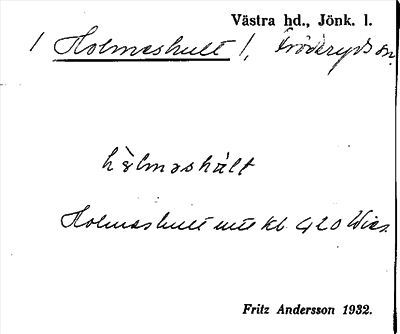 Västra hd., Jönk. l.
/ Holmeshult /, Fröderyds sn.
hòlmashált
Holmeshult mtl Kb 420 Wies.
Fritz Andersson 1932.